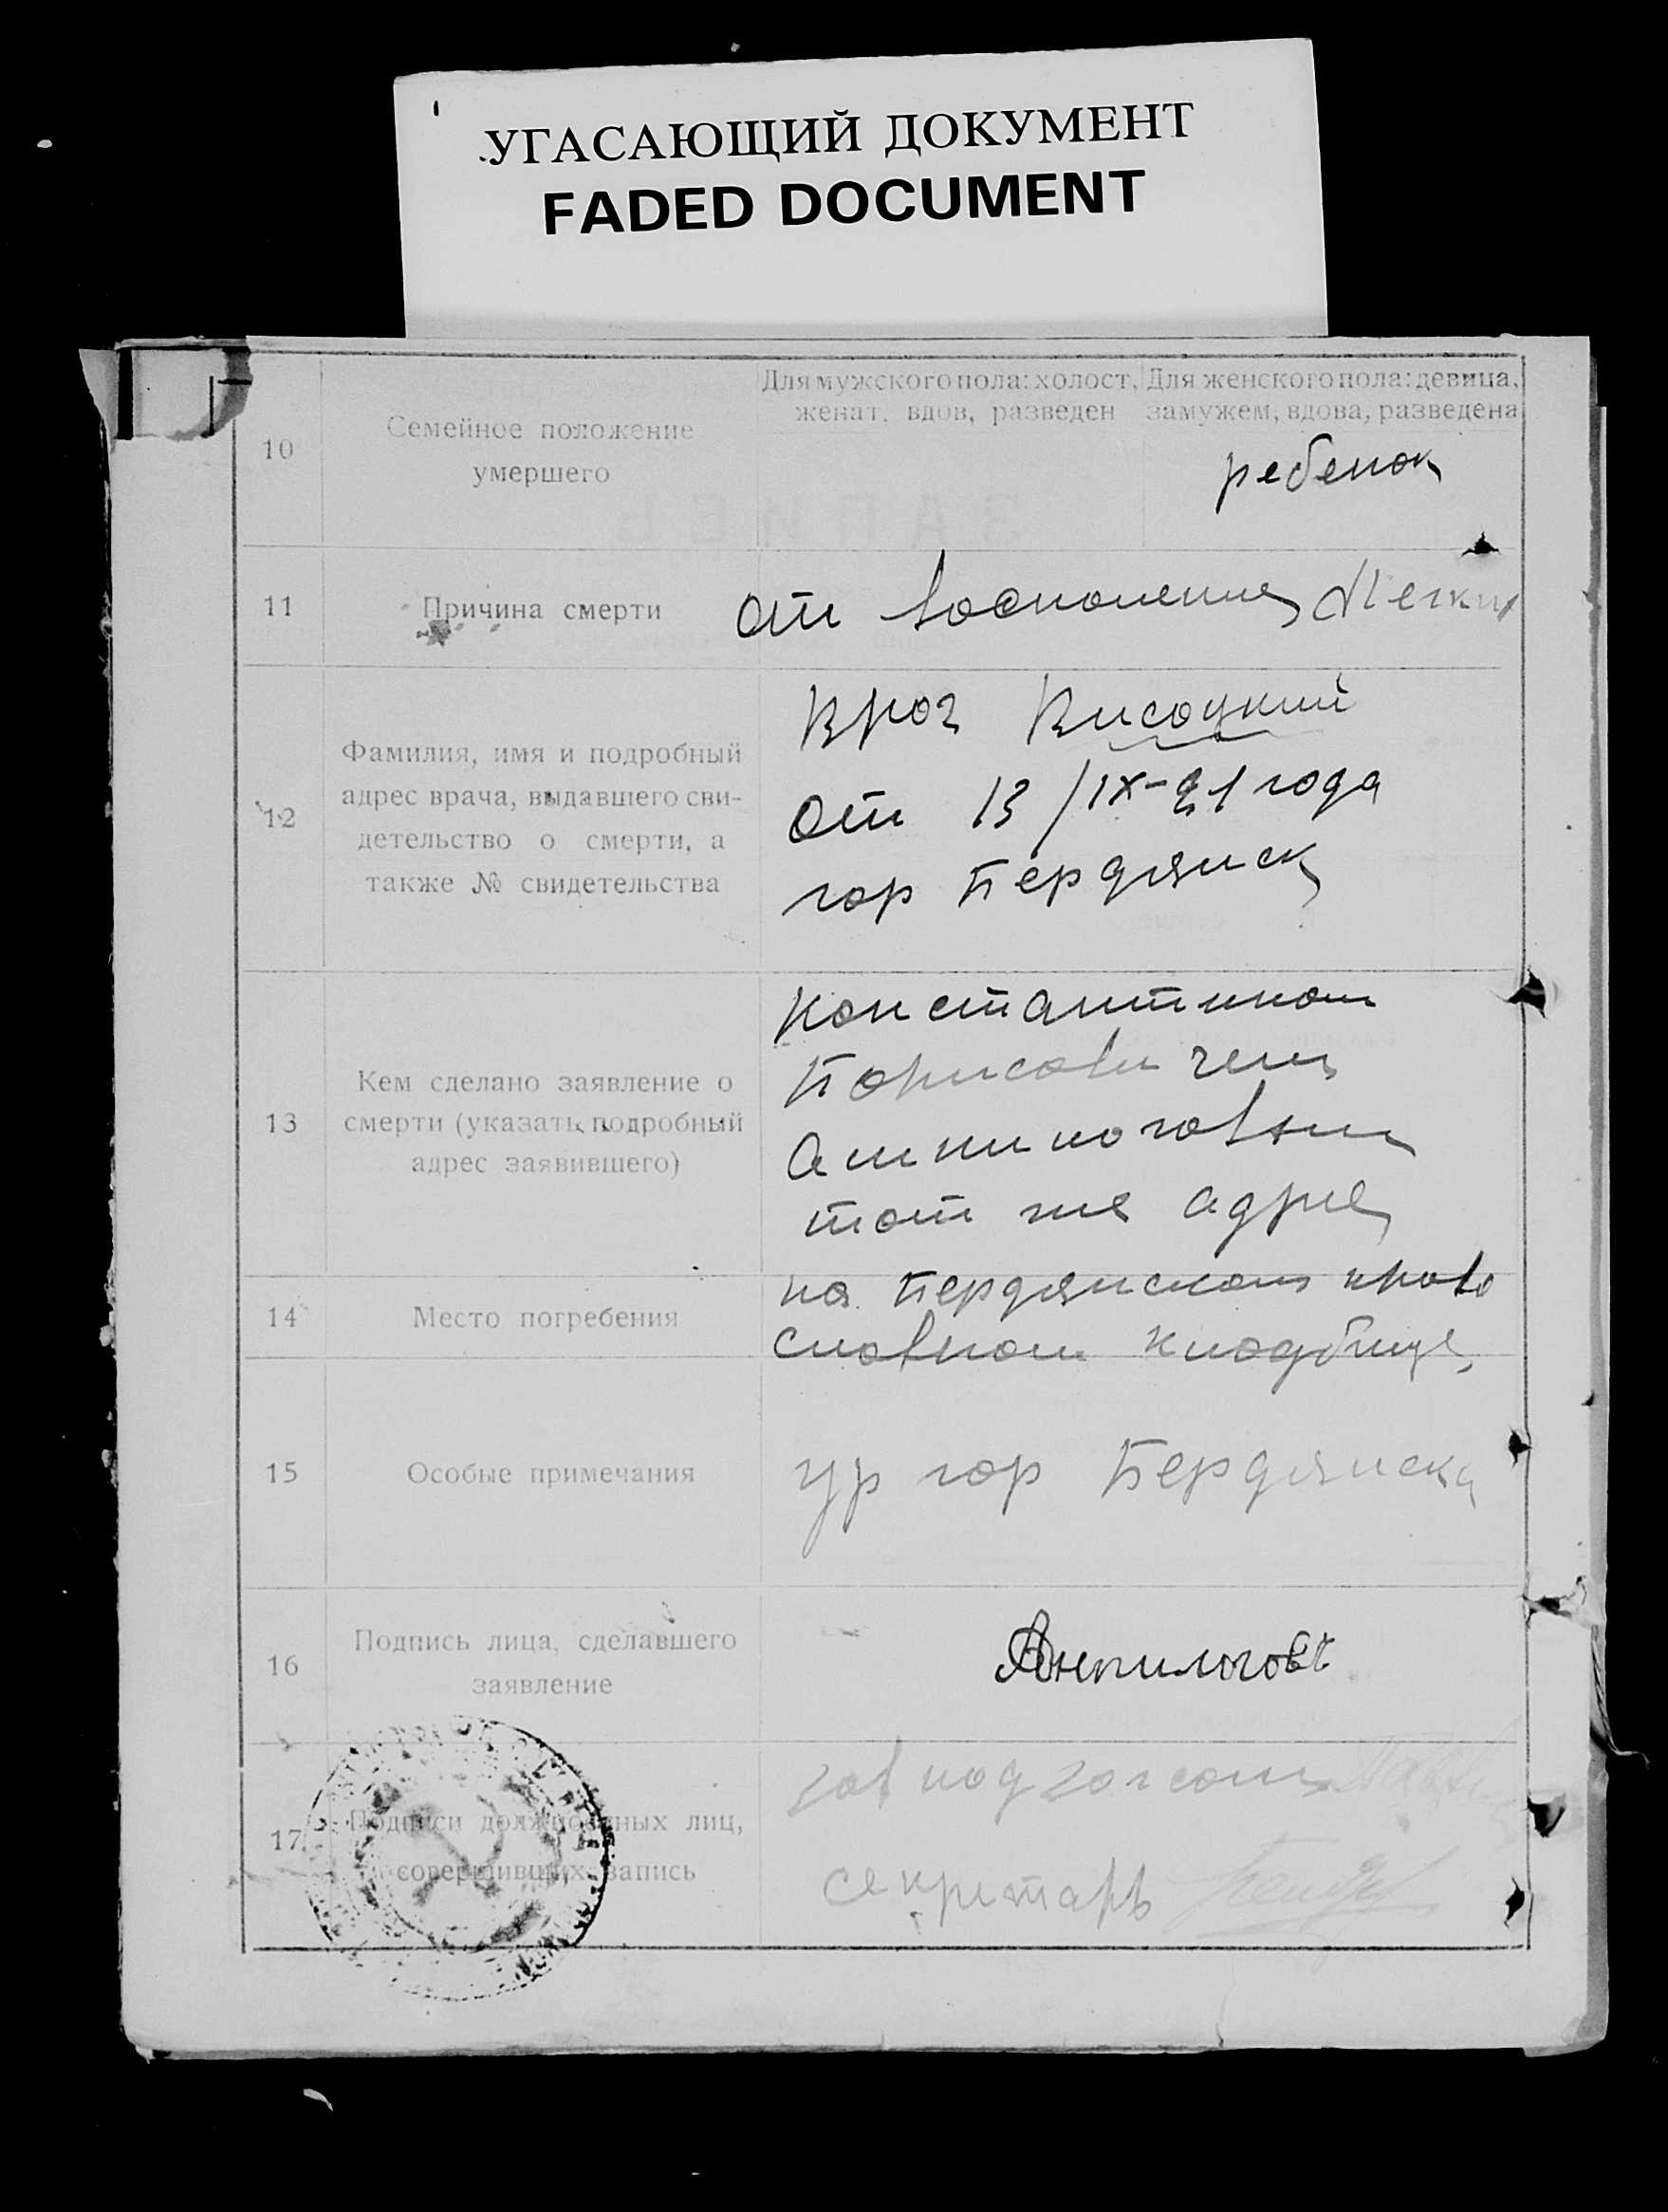 УГАСАЮЩИЙ ДОКУМЕНТ
FADED DOCUMENT
10
Семейное положение
умершего
Для мужского пола: холост,
женат, вдов, разведен
Для женского пола: девица,
замужем, вдова, разведена
ребенок
11
Причина смерти
от восполения Легких
12
Фамилия, имя и подробный
адрес врача, выдавшего сви-
детельство о смерти, а
также № свидетельства
Врог Висоцкий
от 13/IX-21 года
гор Бердянск
13
Кем сделано заявление о
смерти (указать подробный
адрес заявившего)
Константином
Борисовичем
Анпилоговым
тот же адрес
14
Место погребения
на Бердянском право
славном кладбище
15
Особые примечания
ур гор Бердянска
16
Подпись лица, сделавшего
заявление
Анпилоговъ
17
Подписи должностных лиц,
совершивших запись
зав подзагсом
секретарь